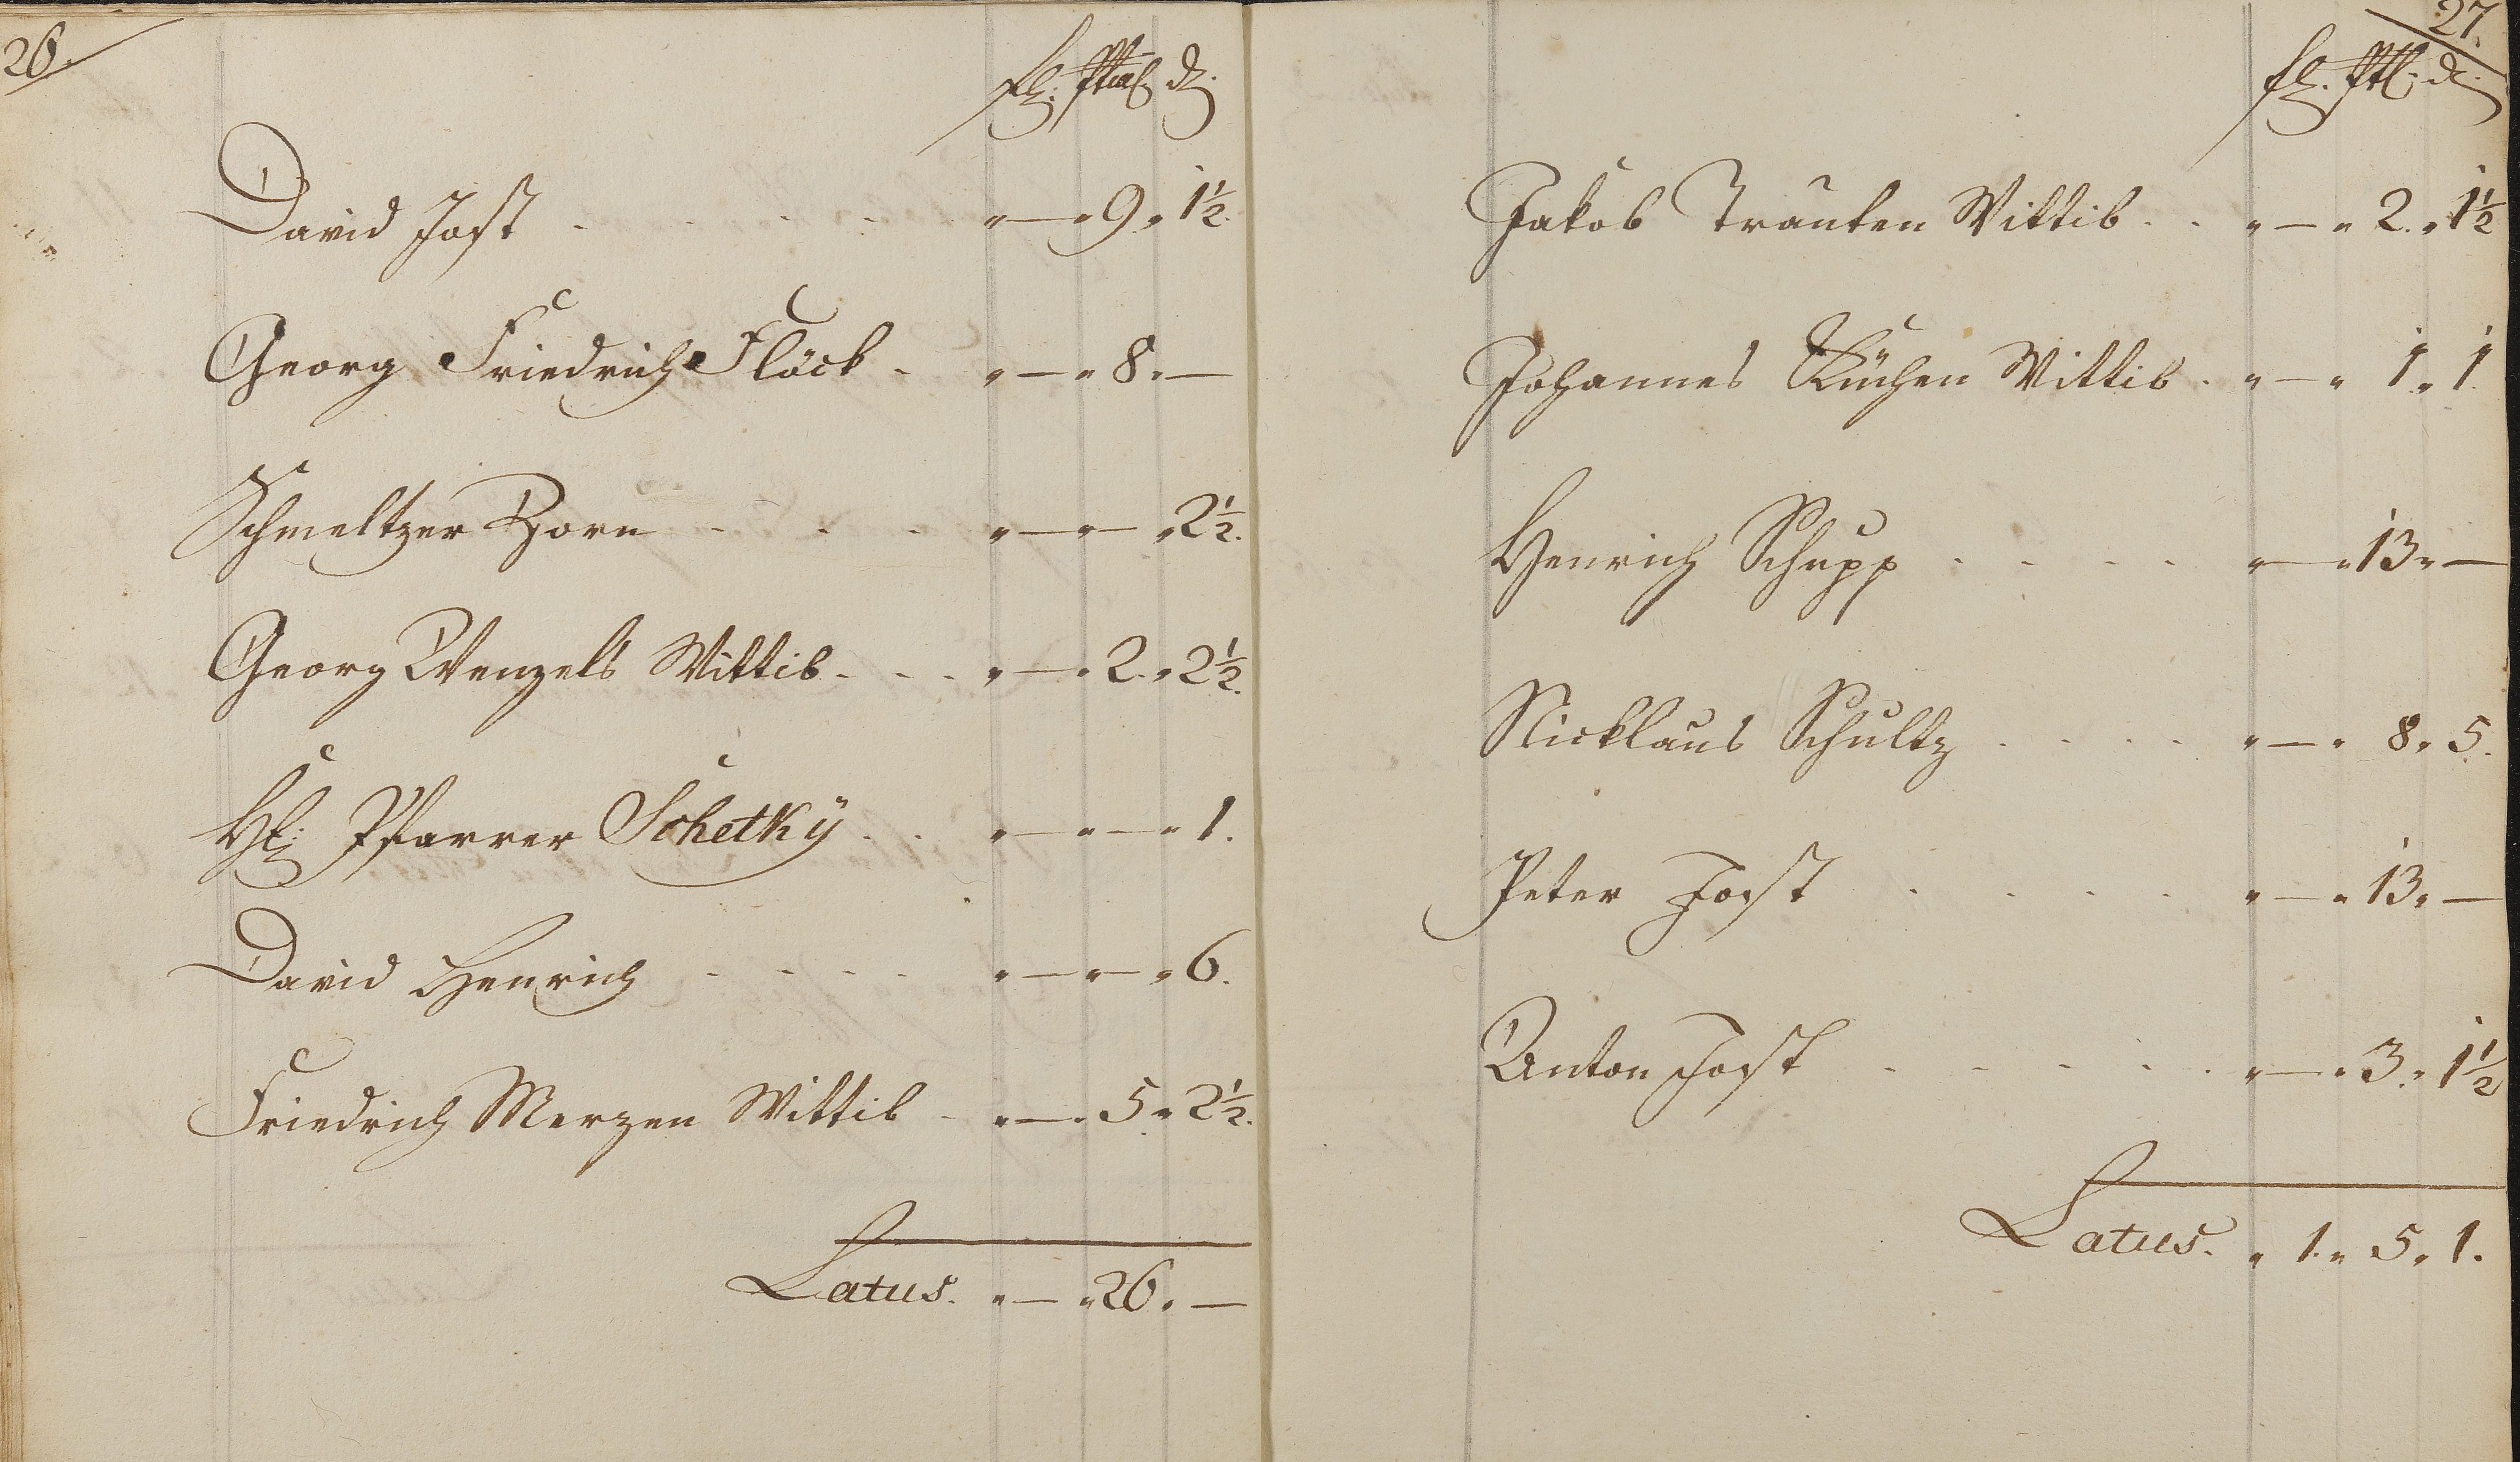 26.
fl. Stbl. d.
David Jost . . . . „ — „ 9. „ 1½.
Georg Friedrich Flöck . „ — „ 8. „ —
Schmeltzer Horn . . . „ — „ — „ 2½.
Georg Wenzels Wittib . . . „ — „ 2. „ 2½.
H. Pfarrer Schetkÿ . . „ — „ — „ 1.
David Henrich . . . . „ — „ — „ 6.
Friedrich Merzen Wittib . „ — „ 5. „ 2½.
Latus. „ — „ 26. „ —
27.
fl. Stbl. d.
Jakob Trauten Wittib . . „ — „ 2. „ 1½
Johannes Küchen Wittib . „ — „ 1. „ 1.
Henrich Schupp . . . . „ — „ 13. „ —
Nicklaus Schultz . . . . „ — „ 8. „ 5.
Peter Jost . . . . „ — „ 13. „ —
Anton Jost . . . . . „ — „ 3. „ 1½
Latus. „ 1. „ 5. „ 1.